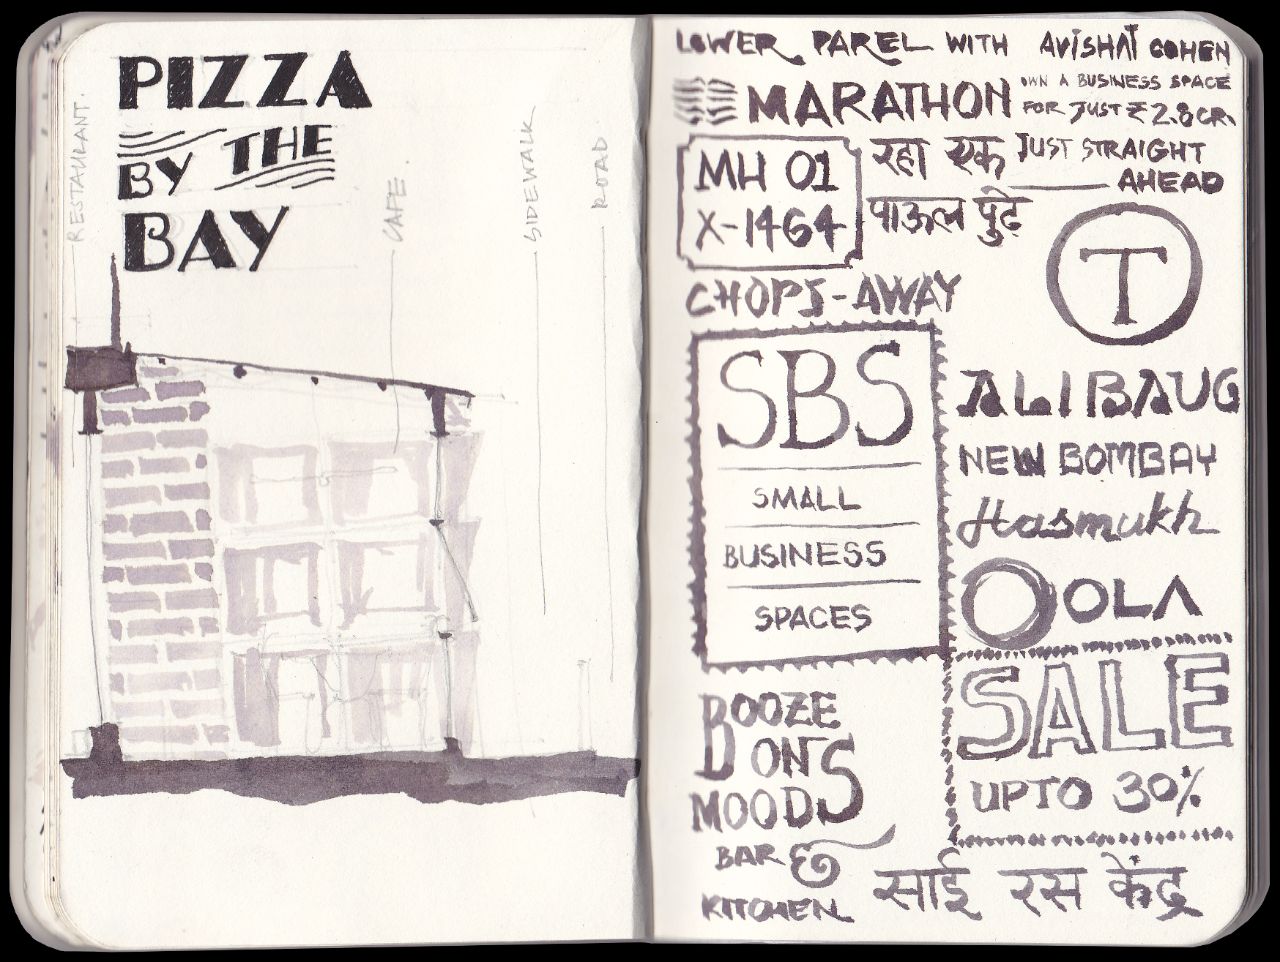 PIZZA
BY THE
BAY
RESTAURANT
CAFE
SIDEWALK
ROAD
LOWER PAREL WITH AVISHAI COHEN
MARATHON
OWN A BUSINESS SPACE
FOR JUST ₹ 2.8 CR.
MH 01
X-1464
रहा एक
पाऊल पुढे
JUST STRAIGHT
AHEAD
T
CHOPS-AWAY
SBS
SMALL
BUSINESS
SPACES
ALIBAUG
NEW BOMBAY
Hasmukh
OLA
SALE
UPTO 30%
BOOZE
ON
MOODS
BAR &
KITCHEN
साई रस केंद्र